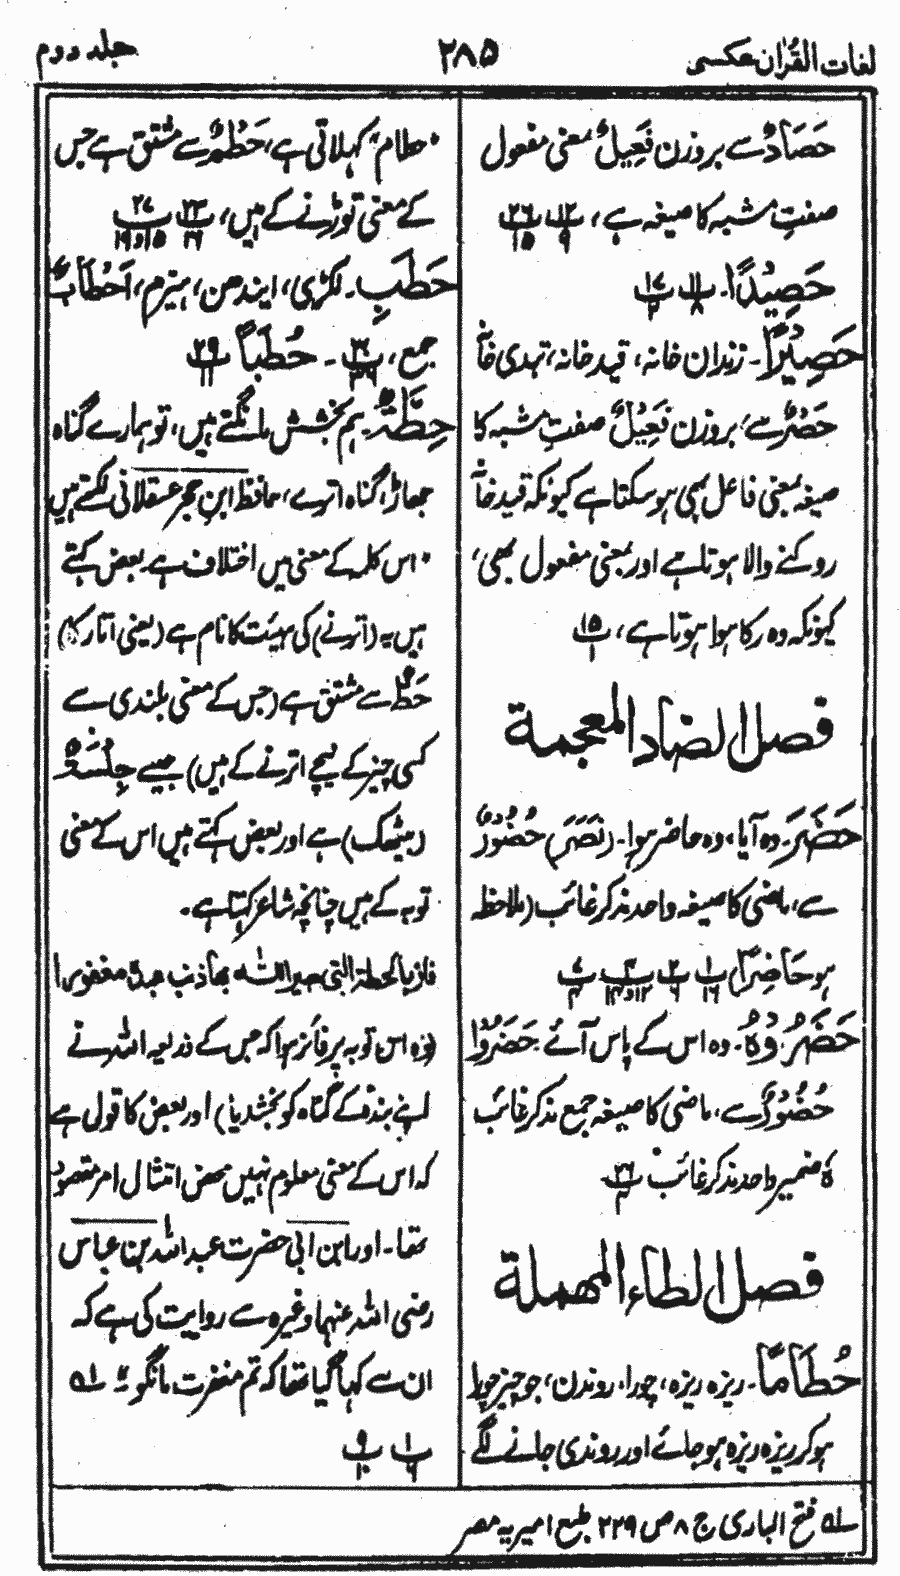 لغات القرآن عکسی
۲۸۵
جلد دوم
حَصَادٌ سے بروزن فَعِیلٌ بمعنی مفعول
صفتِ مشبہ کا صیغہ ہے،
حَصِیدًا۔
حَصِیْرًا۔ زندان خانہ، قید خانہ، بندی خانہ
حَصْرٌ سے، بروزن فَعِیْلٌ صفتِ مشبہ کا
صیغہ بمعنی فاعل بھی ہو سکتا ہے کیونکہ قید خانہ
روکنے والا ہوتا ہے اور بمعنی مفعول بھی،
کیونکہ وہ رکا ہوا ہوتا ہے،
فصل الضاد المعجمة
حَضَرَ۔ وہ آیا، وہ حاضر ہوا۔ (نَصَرَ) حُضُوْرٌ
سے، ماضی کا صیغہ واحد مذکر غائب (ملاحظہ
ہو حَاضِرًا)
حَضَرُوْهُ۔ وہ اس کے پاس آئے۔ حَضَرُوْا
حُضُوْرٌ سے، ماضی کا صیغہ جمع مذکر غائب
ہٗ ضمیر واحد مذکر غائب
فصل الطاء المهملة
حُطَامًا۔ ریزہ ریزہ، چورا، روندن، جو چیز چورا
ہو کر ریزہ ریزہ ہو جائے اور روندی جانے لگے
"حطام" کہلاتی ہے، حَطْمٌ سے مشتق ہے جس
کے معنی توڑنے کے ہیں،
حَطَبِ۔ لکڑی، ایندھن، ہیزم، اَحْطَابٌ
جمع، ۔ حَطَبًا
حِطَّةٌ۔ ہم بخشش مانگتے ہیں، تو ہمارے گناہ
جھاڑ، گناہ اترے، حافظ ابن حجر عسقلانی لکھتے ہیں
"اس کلمہ کے معنی میں اختلاف ہے۔ بعض کہتے
ہیں یہ (اترنے) کی ہیئت کا نام ہے (یعنی اتار کا)
حَطٌّ سے مشتق ہے (جس کے معنی بلندی سے
کسی چیز کے نیچے اترنے کے ہیں) جیسے جِلْسَةٌ
(بیٹھک) ہے اور بعض کہتے ہیں اس کے معنی
توبہ کے ہیں چنانچہ شاعر کہتا ہے۔
فاز بالحطة التی صیر اللہ بھا ذنب عبدہ مغفورا
(وہ اس توبہ پر فائز ہوا کہ جس کے ذریعہ اللہ نے
اپنے بندہ کے گناہ کو بخشدیا) اور بعض کا قول ہے
کہ اس کے معنی معلوم نہیں محض امتثال امر مقصود
تھا۔ اور ابن ابی حضرت عبد اللہ بن عباس
رضی اللہ عنہما وغیرہ سے روایت کی ہے کہ
ان سے کہا گیا تھا کہ تم مغفرت مانگو
فتح الباری ج ۸ ص ۲۲۹ طبع امیریہ مصر